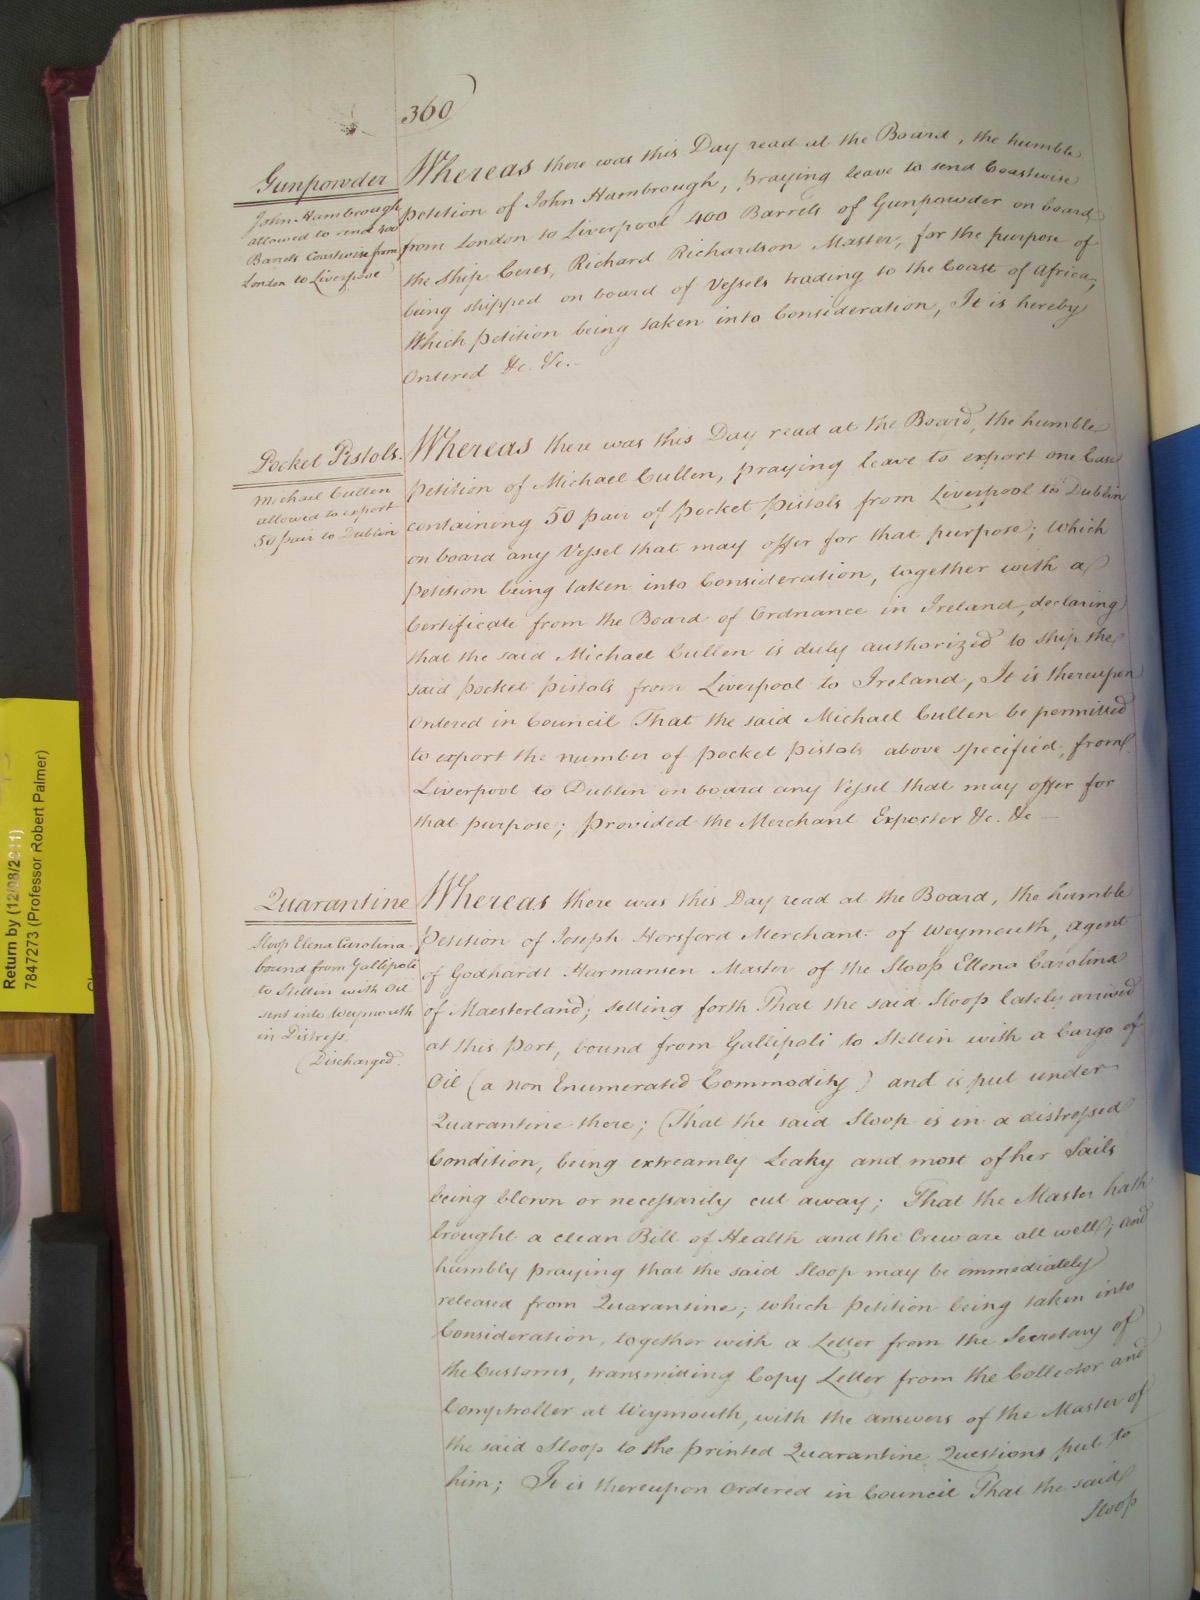 360
Gunpowder
John Hambrough
allowed to send 400
Barrels Coastwise from
London to Liverpool
Whereas there was this Day read at the Board, the humble
petition of John Hambrough, praying leave to send Coastwise
from London to Liverpool 400 Barrels of Gunpowder on board
the Ship Ceres, Richard Richardson Master, for the purpose of
being shipped on board of Vessels trading to the Coast of Africa,
Which petition being taken into Consideration, It is hereby
Ordered &c. &c.
Pocket Pistols.
Michael Cullen
allowed to export
50 pair to Dublin
Whereas there was this Day read at the Board, the humble
Petition of Michael Cullen, praying leave to export one Case
containing 50 pair of Pocket Pistols from Liverpool to Dublin
on board any Vessel that may offer for that purpose; which
petition being taken into Consideration, together with a
Certificate from the Board of Ordnance in Ireland, declaring
that the said Michael Cullen is duly authorized to ship the
said pocket pistols from Liverpool to Ireland, It is thereupon
Ordered in Council That the said Michael Cullen be permitted
to export the number of pocket pistols above specified, from
Liverpool to Dublin on board any Vessel that may offer for
that purpose; provided the Merchant Exporter &c. &c —
Quarantine
Sloop Elena Carolina
bound from Gallipoli
to Stettin with Oil
sent into Weymouth
in Distress.
(Discharged.
Whereas there was this Day read at the Board, the humble
Petition of Joseph Horsford Merchant of Weymouth, agent
of Godhardt Harmansen Master of the Sloop Ellena Carolina
of Maesterland; setting forth That the said Sloop lately arrived
at this Port, bound from Gallipoli to Stettin with a Cargo of
Oil (a non Enumerated Commodity) and is put under
Quarantine there; (That the said Sloop is in a distressed
Condition, being extreamly Leaky and most of her Sails
being blown or necessarily cut away; That the Master hath
brought a clean Bill of Health and the Crew are all well; and
humbly praying that the said Sloop may be immediately
released from Quarantine; which petition being taken into
Consideration, together with a Letter from the Secretary of
the Customs, transmitting Copy Letter from the Collector and
Comptroller at Weymouth, with the answers of the Master of
the said Sloop to the printed Quarantine Questions put to
him; It is thereupon Ordered in Council That the said
Sloop
Return by (12/08/2011)
7847273 (Professor Robert Palmer)